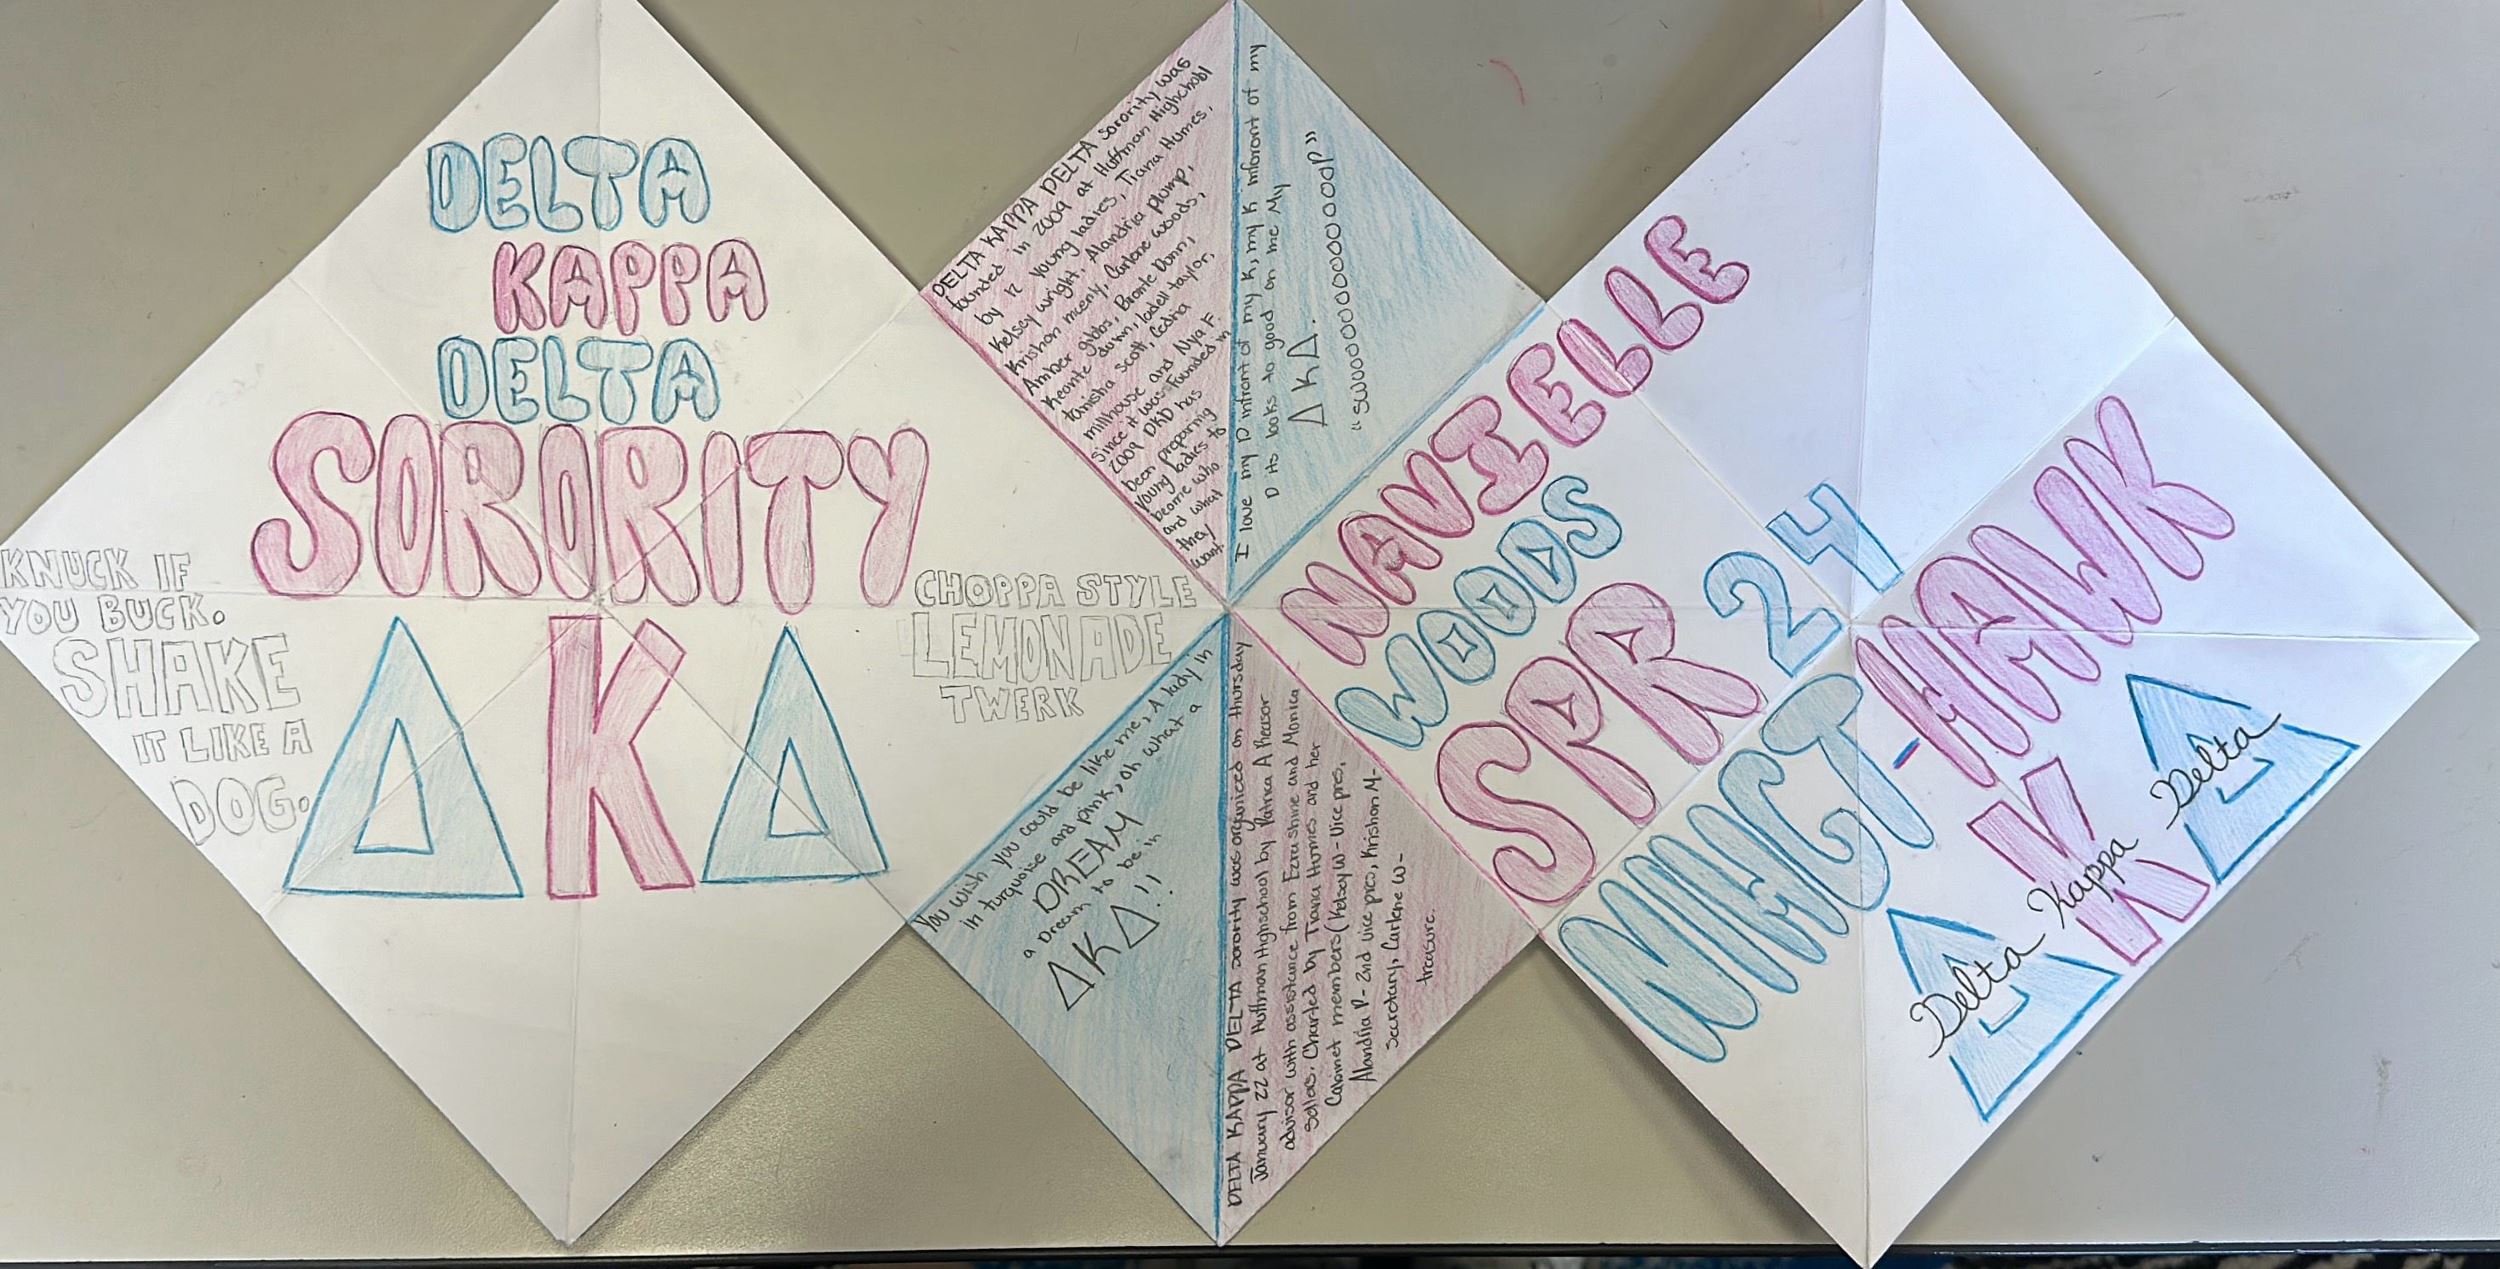 DELTA
KAPPA
DELTA
SORORITY
ΔKΔ
KNUCK IF
YOU BUCK.
SHAKE
IT LIKE A
DOG.
CHOPPA STYLE
LEMONADE
TWERK
DELTA KAPPA DELTA Sorority was
founded in 2009 at Huffman Highchobl
by 12 Young ladies, Tiana Humes,
Kelsey wright, Alandria plump,
Krishon mcenly, Carlene woods,
Amber gibbs, Bronte Dunn,
Keonte dunn, ladell taylor,
tanisha scott, Cedria
millhouse and Nya F.
Since it was Founded in
2009 DKD has
been preparing
Young ladies to
become who
and what
they
want.
I love my D infront of my K, my K inforont of my
D its looks to good on me My
ΔKΔ.
"SWOOOOOOOOOOOOOOP"
You wish you could be like me, A lady in
in turquoise and pink, oh what a
DREAM
a Dream to be in
ΔKΔ!!
DELTA KAPPA DELTA sorority was organized on thursday
January 22 at Huffman Highschool by Patrica A Reasor
advisor with assistence from Ezra shine and Monica
Sellas. Charted by Tiana Humes and her
Cabinet members (Kelsey W- Vice pres,
Alandria P- 2nd vice pres, Krishon M-
Secretary, Carlene W-
treasure.
NAVIELLE
WOODS
SPR 24
MHCT-HAWK
ΔKΔ
Delta Kappa Delta